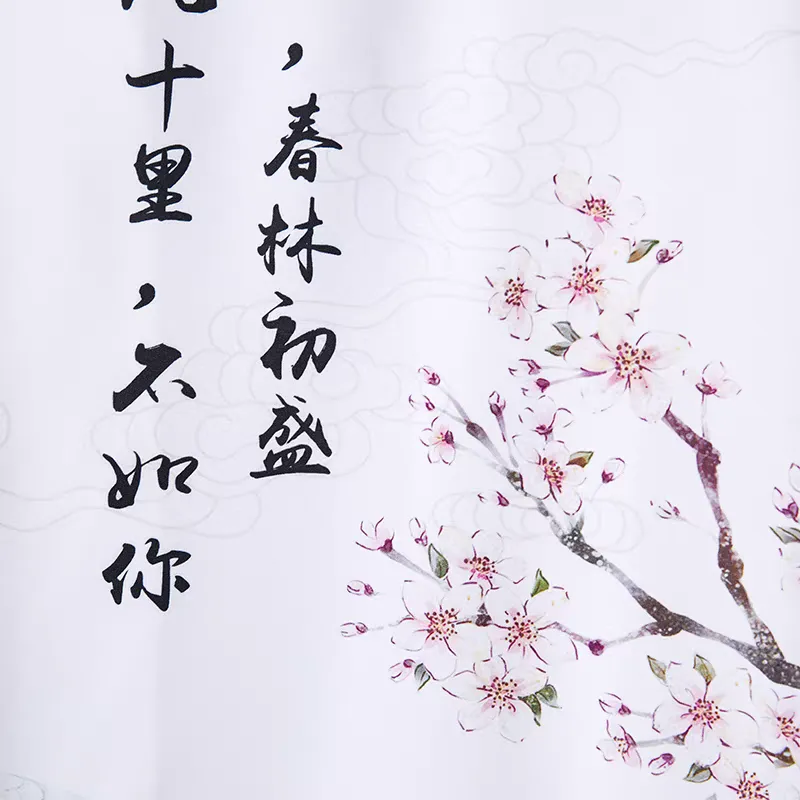 ，春林初盛
十里，不如你